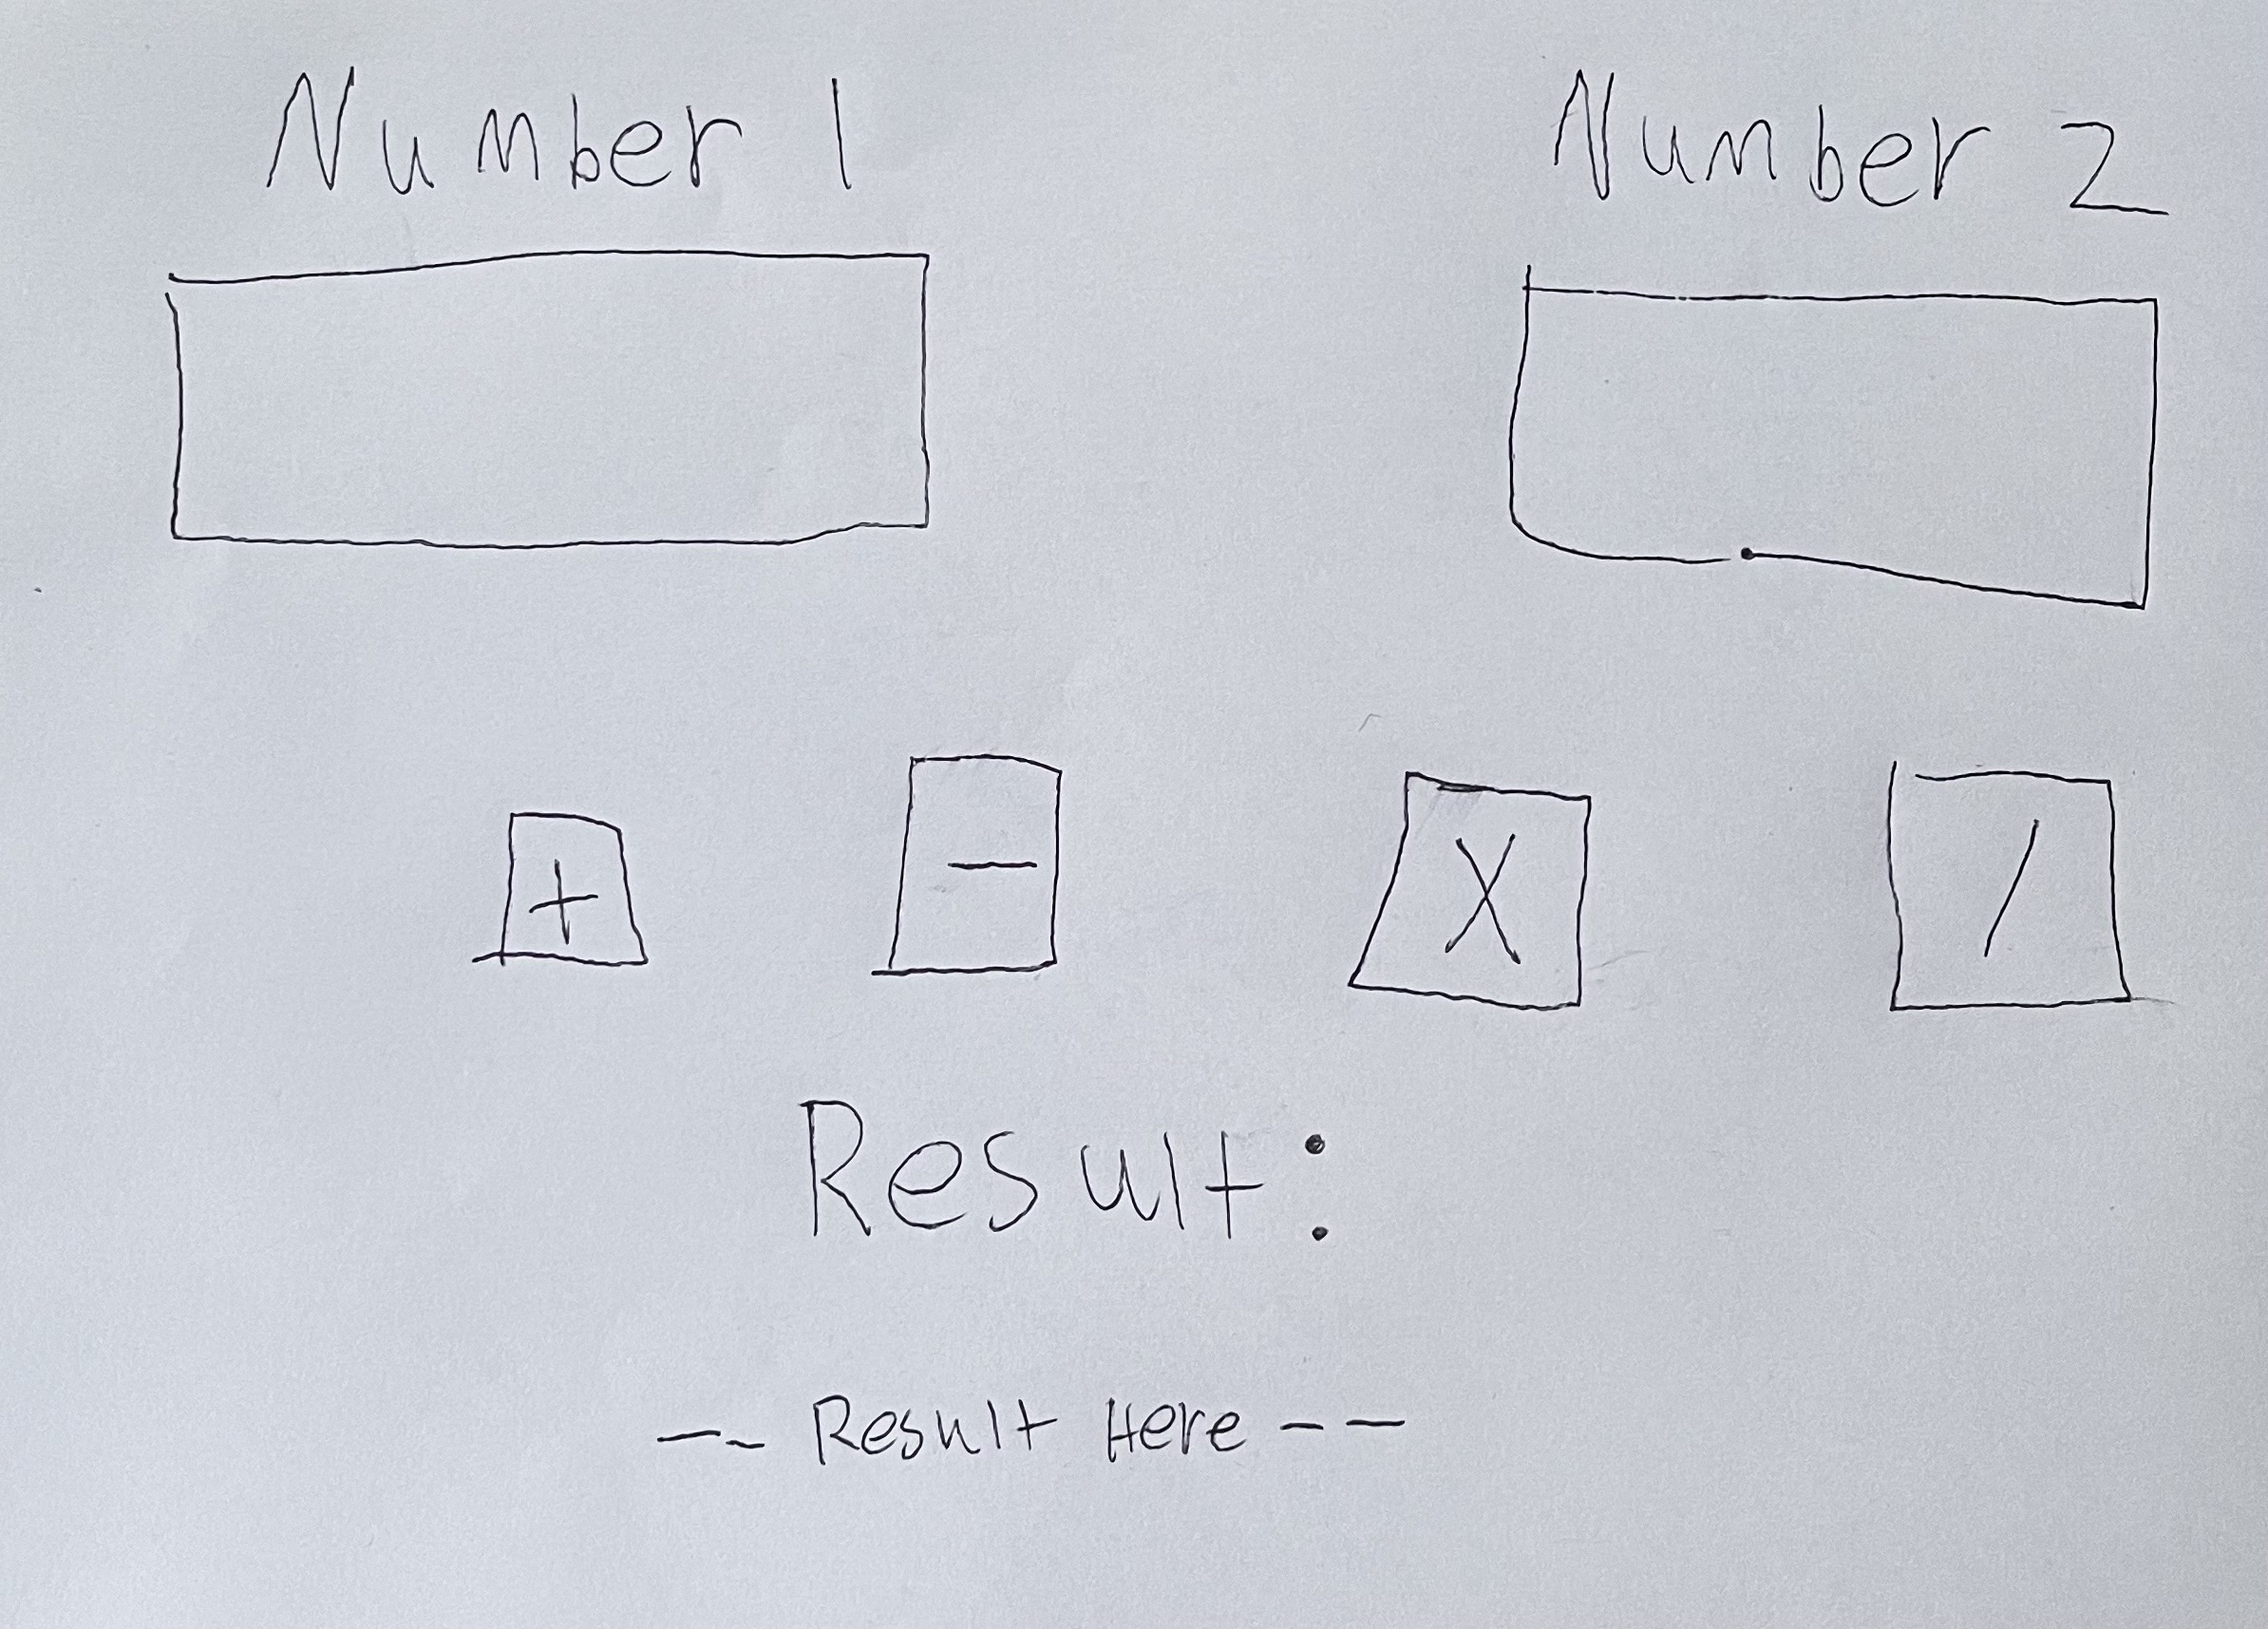 Number 1 Number 2
+ - X /
Result:
-- Result Here --